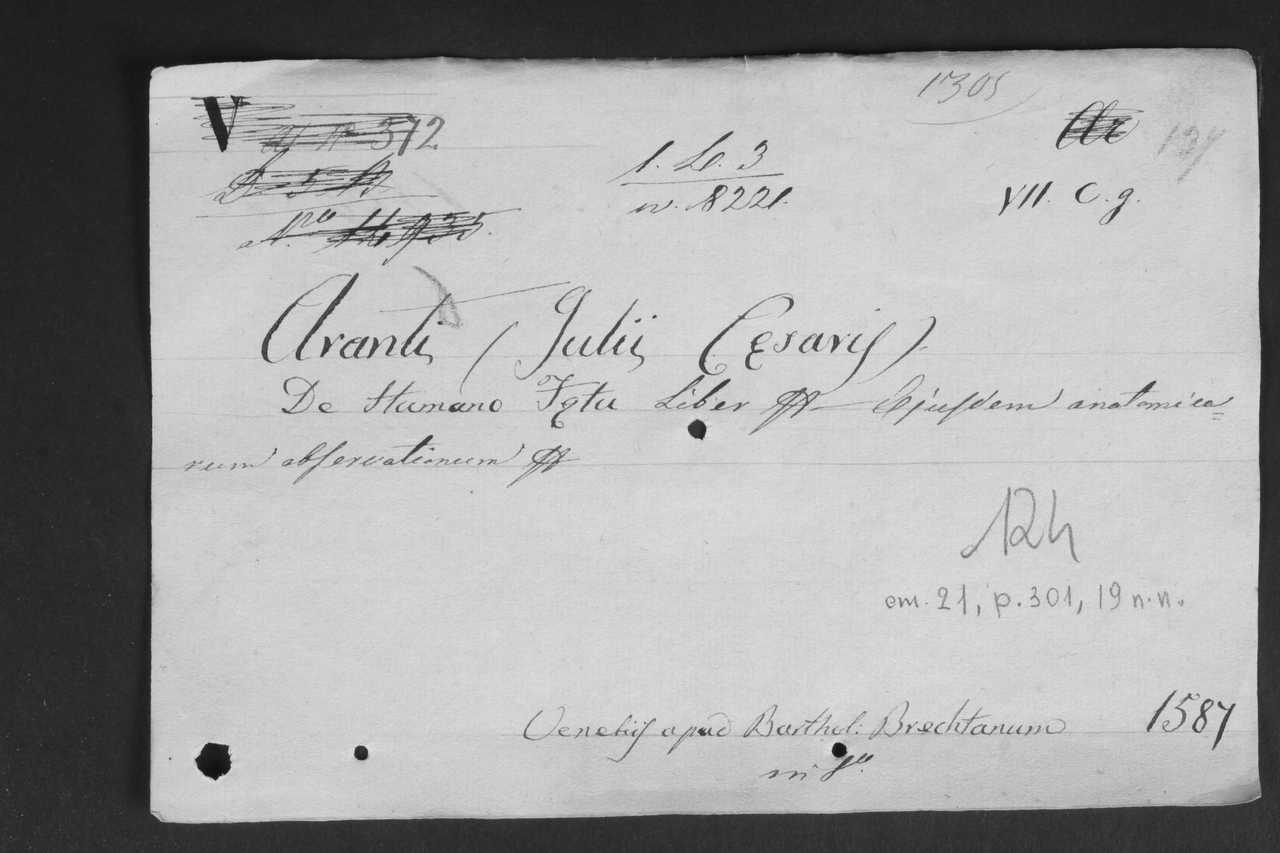 1305
V 572
1. Le. 3
n. 8221.
VII. C. g.
Aranti (Julii Cęsaris).
De Humano Fętu Liber — Ejusdem anatomica=
rum observationum
12h
cm. 21, p. 301, 19 n.n.
Venetiis apud Barthol: Brechtanum 1587
in 8º